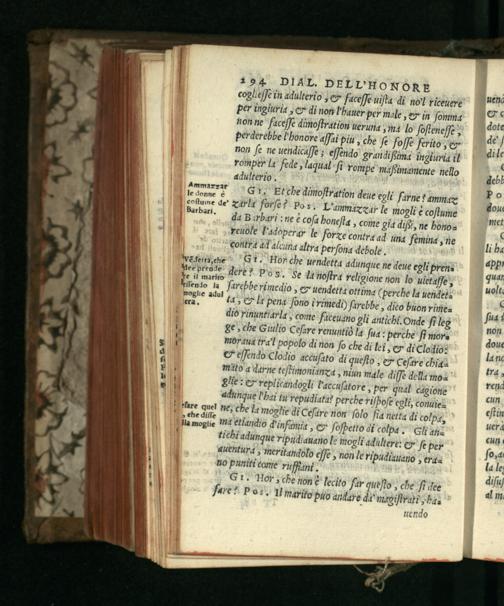 294 DIAL. DELL'HONORE
cogliesse in adulterio, & facesse uista di no'l riceuere
per ingiuria, & di non l'hauer per male, & in somma
non ne facesse dimostration ueruna, ma lo sostenesse,
perderebbe l'honore assai piu, che se fosse ferito, &
non se ne uendicasse; essendo grandissima ingiuria il
romper la fede, laqual si rompe massimamente nello
adulterio.
Ammazzar
le donne è
costume de'
Barbari.
GI. Et che dimostration deue egli farne? ammaz
zarla forse? POS. L'ammazzar le mogli è costume
da Barbari: ne è cosa honesta, come già dissi, ne hono-
reuole l'adoperar le forze contra ad una femina, ne
contra ad alcuna altra persona debole.
Vēdetta, che
dee prende
re il marito
essendo la
moglie adul
tera.
GI. Hor che uendetta adunque ne deue egli pren-
dere? POS. Se la nostra religione non lo uietasse,
sarebbe rimedio, & uendetta ottima (perche la uendet-
ta, & la pena sono i rimedi) sarebbe, dico buon rime-
dio rinuntiarla, come faceuano gli antichi. Onde si leg
ge, che Giulio Cesare renuntiò la sua: perche si mor-
moraua tra'l popolo di non so che di lei, & di Clodio:
& essendo Clodio accusato di questo, & Cesare chia-
mato a darne testimonianza, niun male disse della mo-
glie: & replicandogli l'accusatore, per qual cagione
adunque l'hai tu repudiata? perche rispose egli, conuie-
Cesare quel
, che disse
lla moglie
ne, che la moglie di Cesare non solo sia netta di colpa,
ma etiandio d'infamia, & sospetto di colpa. Gli an-
tichi adunque ripudiauano le mogli adultere: & se per
auentura, meritandolo esse, non le ripudiauano, era-
no puniti come ruffiani.
GI. Hor, che non è lecito far questo, che si dee
fare? POS. Il marito può andare da' magistrati, ha-
uendo